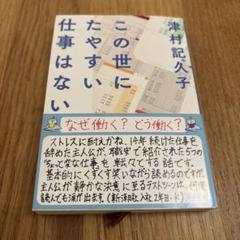 津村記久子
この世に
たやすい
仕事はない
なぜ働く? どう働く?
ストレスに耐えかね、14年続けた仕事を
辞めた主人公が、職安で紹介された5つの
"ちょっと変な仕事"を転々とする話です。
基本的にくすくす笑いながら読めるのですが、
主人公が静かな決意に至るラストシーンは、何度
読んでも涙が出ます。(新潮社入社2年目・K)